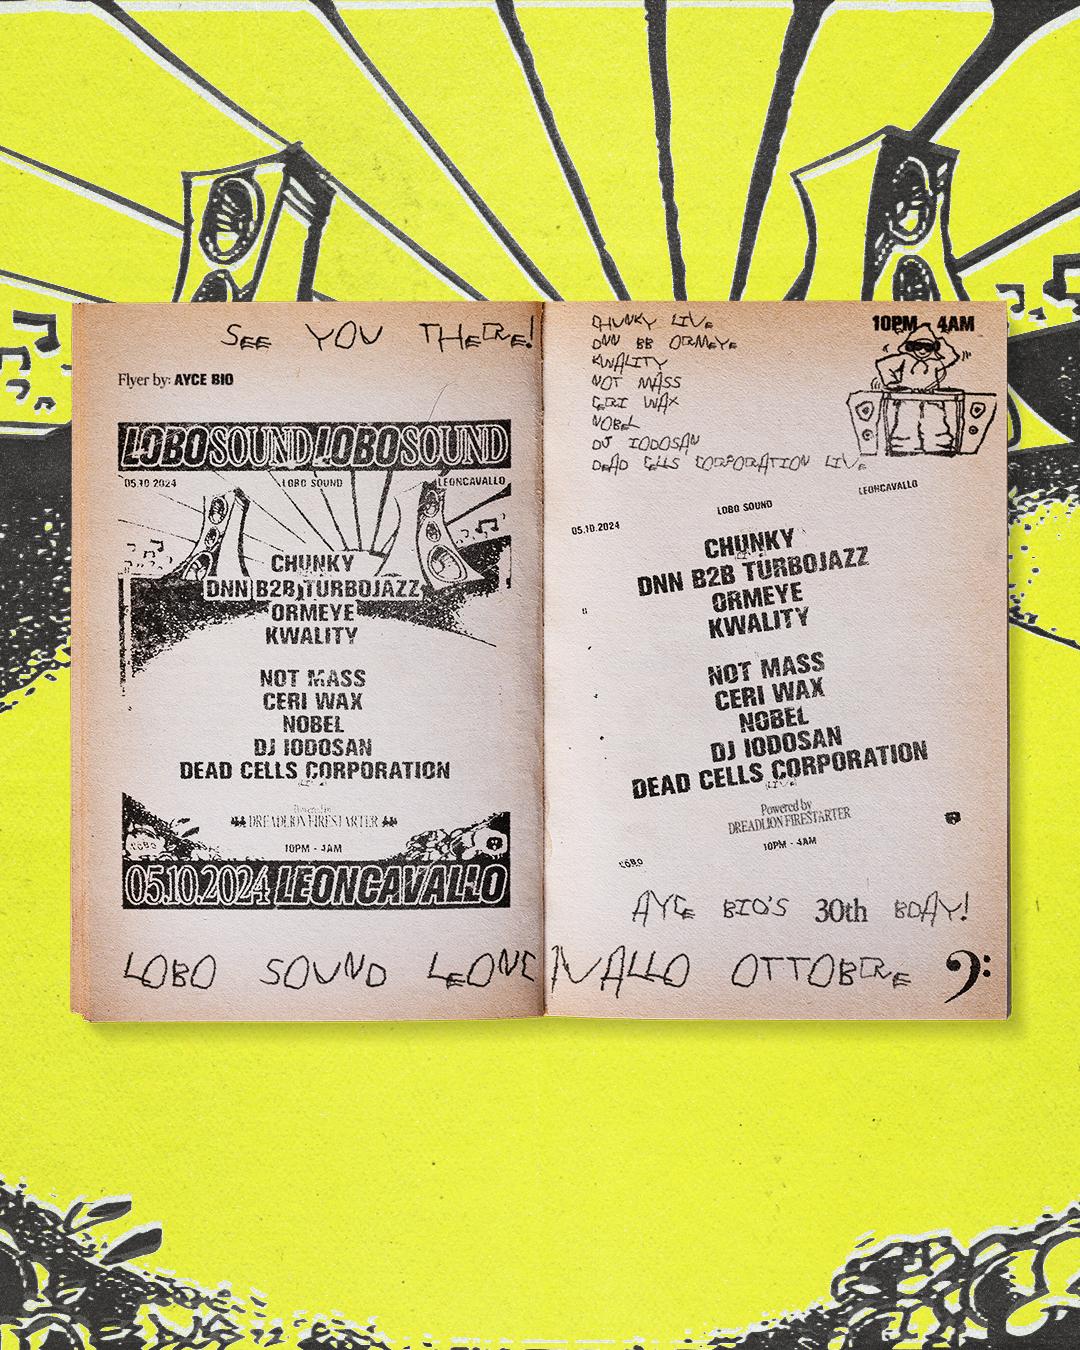 SEE YOU THERE!
Flyer by: AYCE BIO
LOBOSOUNDLOBOSOUND
05.10.2024 LOBO SOUND LEONCAVALLO
CHUNKY
DNN B2B TURBOJAZZ
ORMEYE
KWALITY
NOT MASS
CERI WAX
NOBEL
DJ IODOSAN
DEAD CELLS CORPORATION
LIVE
Powered by
DREADLION FIRESTARTER
LOBO
10PM - 4AM
05.10.2024 LEONCAVALLO
CHUNKY LIVE
DNN BB ORMEYE
KWALITY
NOT MASS
CERI WAX
NOBEL
DJ IODOSAN
DEAD CELLS CORPORATION LIVE
10PM - 4AM
05.10.2024 LOBO SOUND LEONCAVALLO
CHUNKY
DNN B2B TURBOJAZZ
ORMEYE
KWALITY
NOT MASS
CERI WAX
NOBEL
DJ IODOSAN
DEAD CELLS CORPORATION
LIVE
Powered by
DREADLION FIRESTARTER
10PM - 4AM
LOBO
AYCE BIO'S 30th BDAY!
LOBO SOUND LEONCAVALLO OTTOBRE